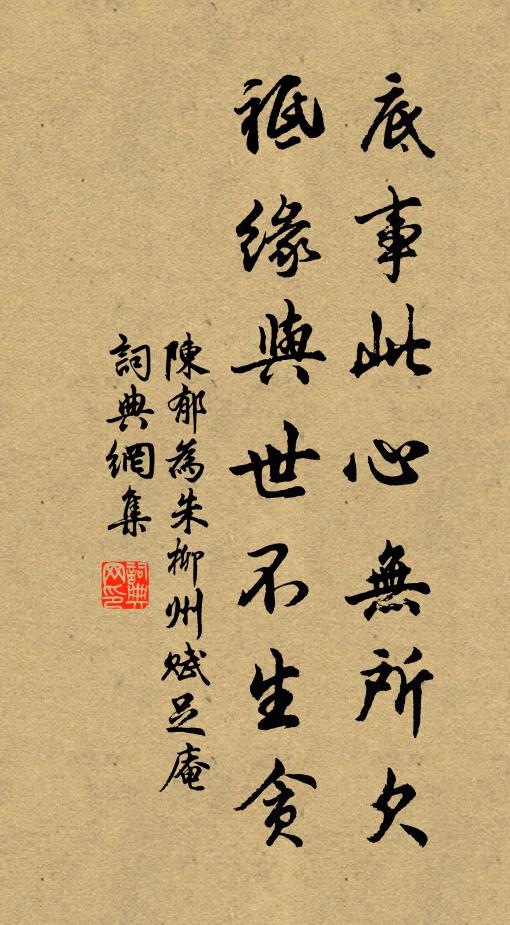 底事此心無所欠
祗緣與世不生貪
陳郁為朱柳州賦足庵
詞典網集
詞典網印